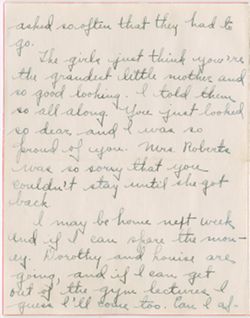 asked so often that they had to
go.
The girls just think you're
the grandest little mother and
so good looking. I told them
so all along. You just looked
so dear, and I was so
proud of you. Mrs Roberts
was so sorry that you
couldn't stay until she got
back.
I may be home next week
end if I can spare the mon-
ey. Dorothy and Louise are
going, and if I can get
out of the gym lectures I
guess I'll come too. Can I af-